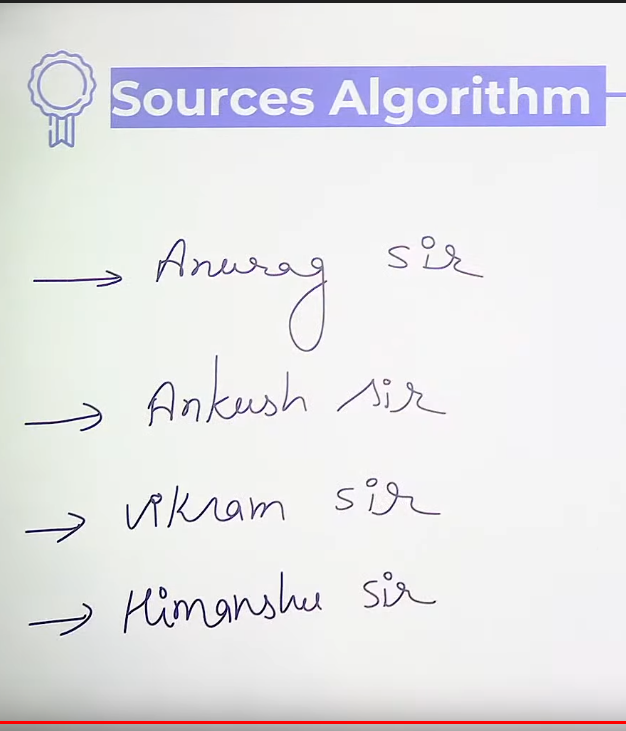 Sources Algorithm
Anurag sir
Ankush sir
Vikram sir
Himanshu sir